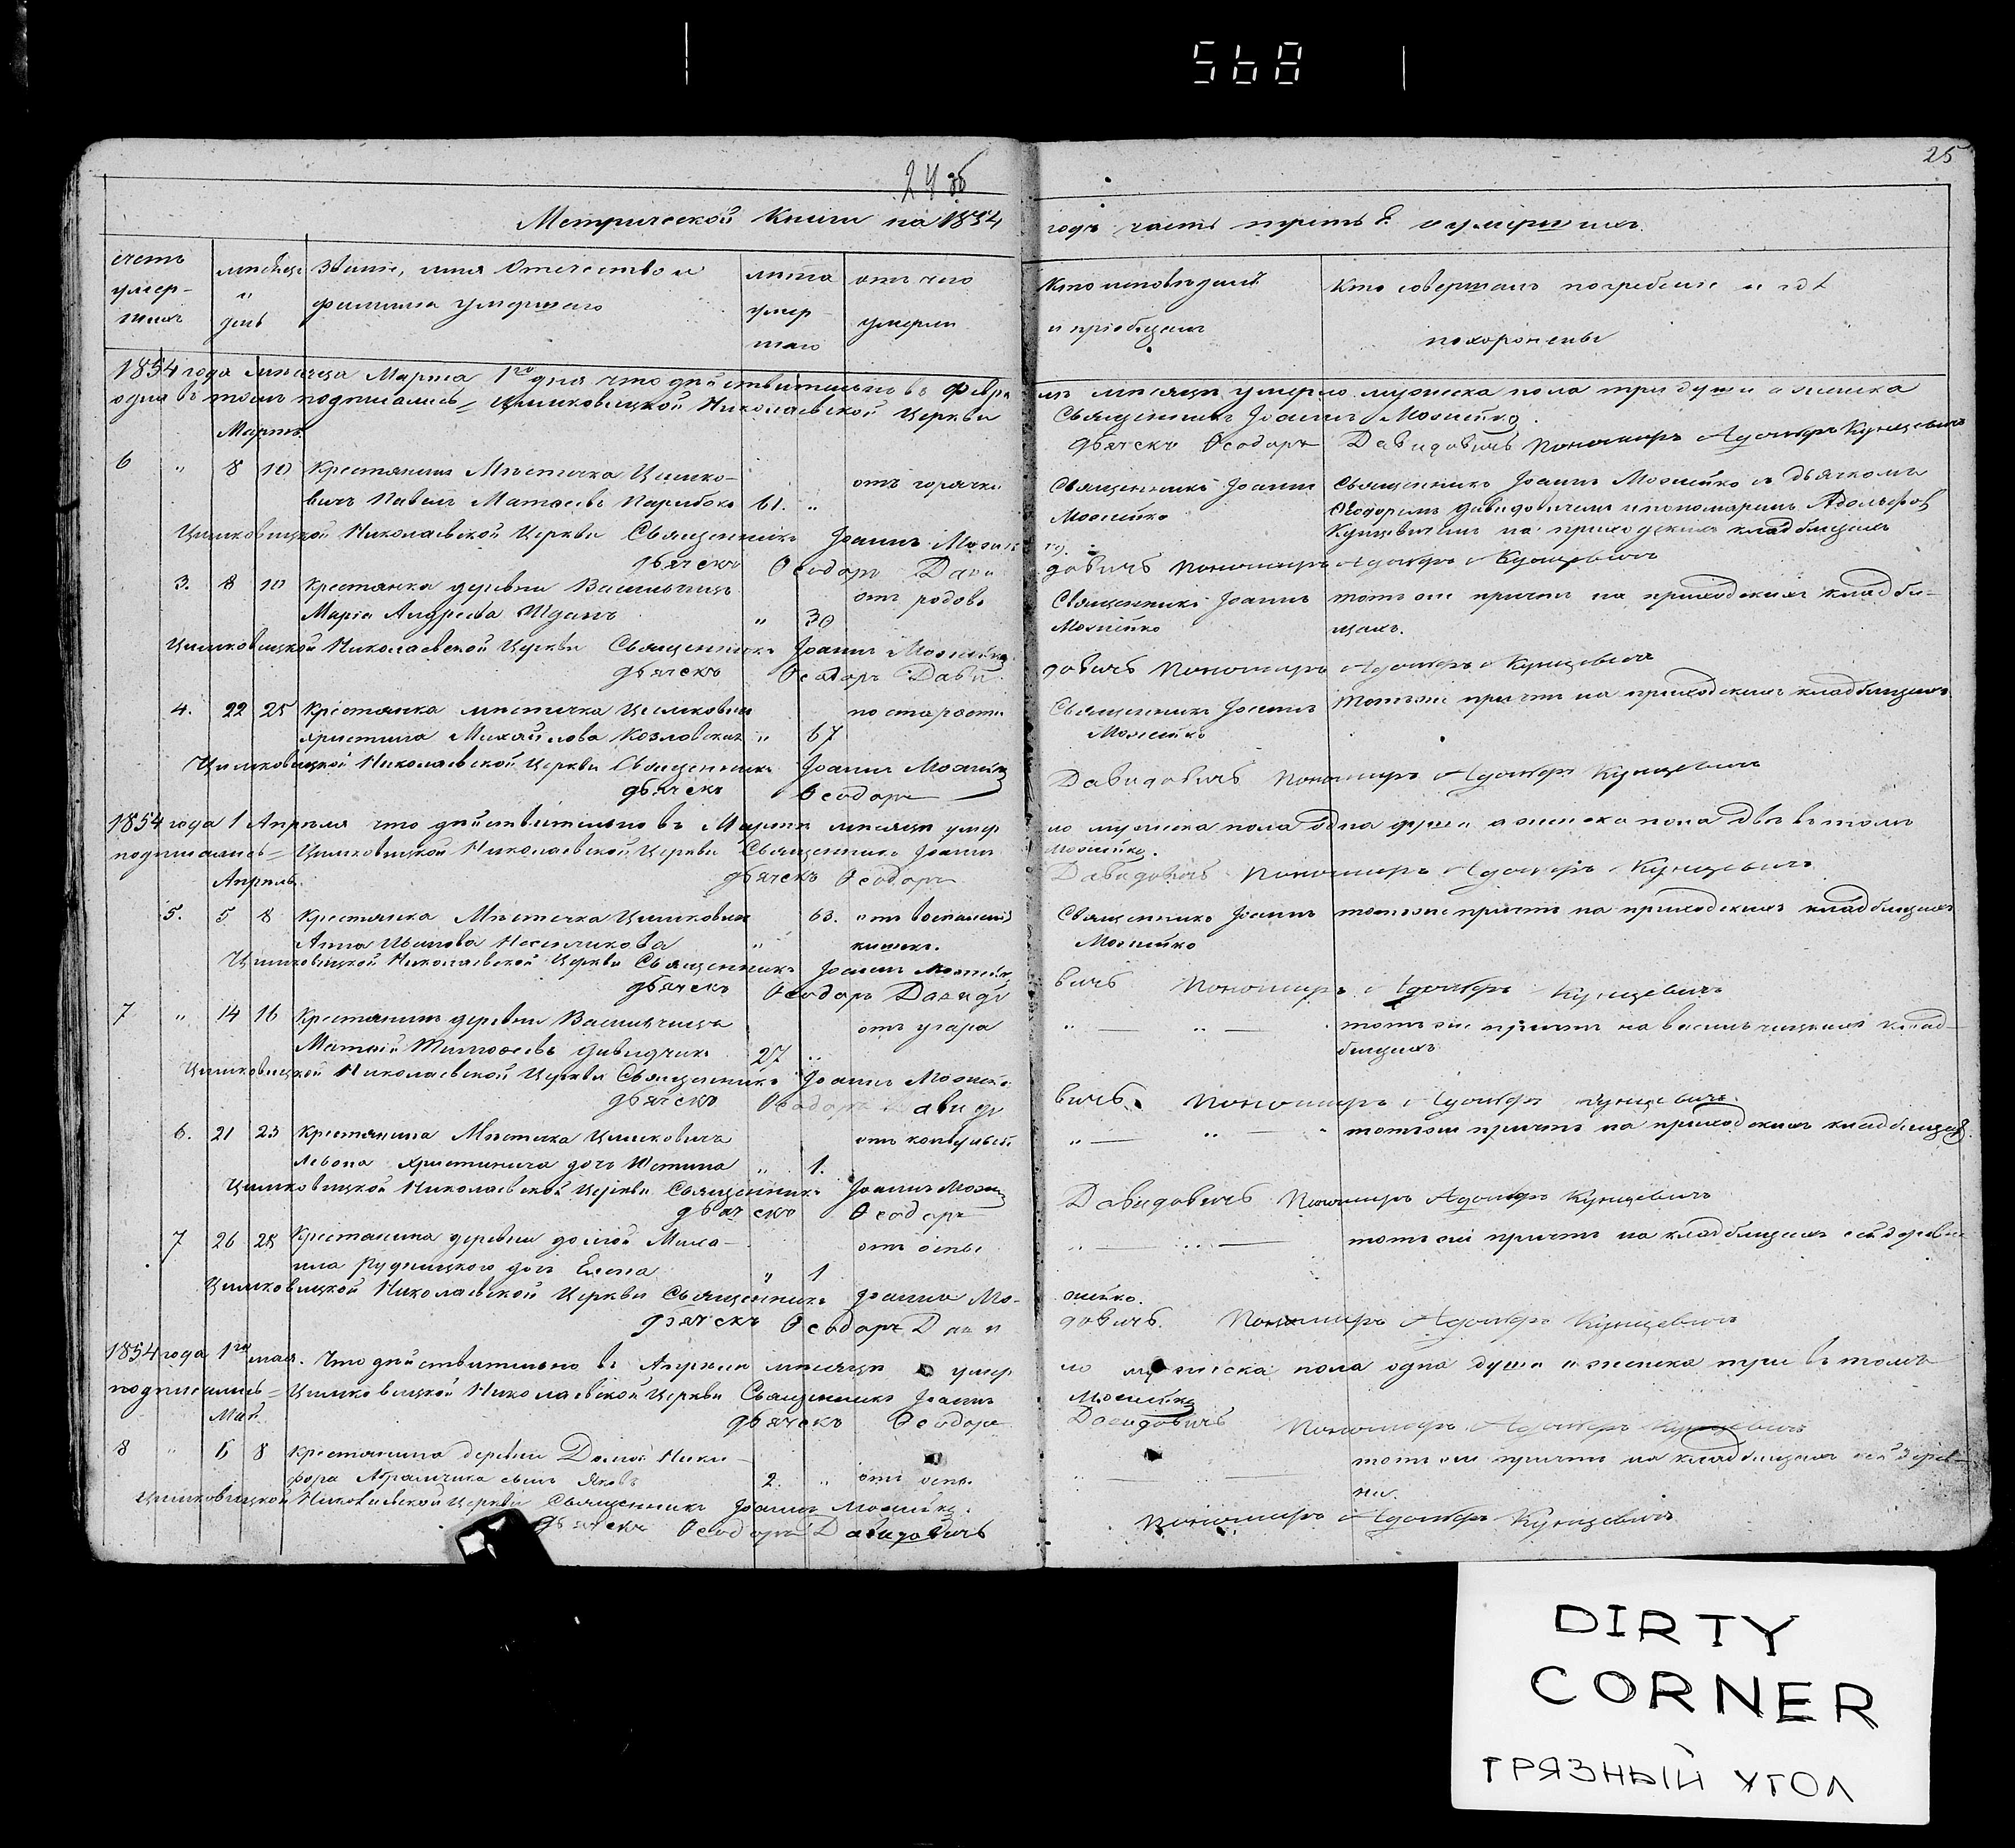 568
24 об
25
Метрической Книги на 1854
годъ часть третья о умершихъ
счетъ умер-шихъ
мѣсяцъ и день
Званіе, имя Отечество и фамилія умершаго
лѣта умер-шаго
отъ чего умерли
Кто исповѣдалъ и пріобщалъ
Кто совершалъ погребеніе и гдѣ похоронены
1854 года мѣсяца Марта 1го дня что дѣйствительно въ Февра
лѣ мѣсяцѣ умерло мужеска пола три души а женска
одна въ томъ подписались = Цимковицкой Николаевской Церкви
Священникъ Іоаннъ Можейко
Мартъ
дьячекъ Ѳеодоръ Давидовичъ Пономарь Адольфъ Кунцевичъ
6 " 8 10 Крестянинъ Мѣстечка Цимко-
вичъ Павелъ Матѳеевъ Парибокъ 61. " отъ горячки
Священникъ Іоаннъ Можейко
Священникъ Іоаннъ Можейко съ дьячкомъ
Ѳеодоромъ Давидовичемъ и пономаремъ Адольфов
Кунцевичемъ на приходскихъ кладбищахъ
Цимковицкой Николаевской Церкви Священникъ Іоаннъ Можей
дьячекъ Ѳеодоръ Дави
довичъ Пономарь Адольфъ Кунцевичъ
3. 8 10 Крестянка деревни Васильчицъ
Марія Андреева Жданъ " 30 отъ родовъ
Священникъ Іоаннъ Можейко
тотъ же причтъ на приходскихъ кладби-
щахъ.
Цимковицкой Николаевской Церкви Священникъ Іоаннъ Можейко
дьячекъ Ѳеодоръ Дави
довичъ Пономарь Адольфъ Кунцевичъ
4. 22 25 Крестянка мѣстечка Цимковичъ
Христина Михайлова Козловская " 67 по старости
Священникъ Іоаннъ Можейко
тотъ же причтъ на приходскихъ кладбищахъ
Цимковицкой Николаевской Церкви Священникъ Іоаннъ Можейко
дьячекъ Ѳеодоръ
Давидовичъ Пономарь Адольфъ Кунцевичъ
1854 года 1 Апрѣля что дѣйствительно въ Мартѣ мѣсяцѣ умер
ло мужеска пола одна душа а женска пола двѣ въ томъ
подписались = Цимковицкой Николаевской Церкви Священникъ Іоаннъ
Можейко.
Апрель.
дьячекъ Ѳеодоръ
Давидовичъ Пономарь Адольфъ Кунцевичъ
5. 5 8 Крестянка Мѣстечка Цимковичъ
Анна Иванова " 63. отъ воспаленія кишекъ.
Священникъ Іоаннъ Можейко
тотъ же причтъ на приходскихъ кладбищахъ
Цимковицкой Николаевской Церкви Священникъ Іоаннъ Можейк
дьячекъ Ѳеодоръ Давидо
вичъ Пономарь Адольфъ Кунцевичъ
7 " 14 16 Крестянинъ деревни Васильчицъ
Матвей Тимоѳеевъ Давидчикъ 27 " отъ угара
" — " — тотъ же причтъ на васильчицкихъ клад-
бищахъ
Цимковицкой Николаевской Церкви Священникъ Іоаннъ Можейко
дьячекъ Ѳеодоръ Давидо
вичъ. Пономарь Адольфъ Кунцевичъ
6. 21 23 Крестянина Мѣстечка Цимковичъ
Левона дочь Юстина " 1. отъ конвульсій
" — " — тотъ же причтъ на приходскихъ кладбищахъ.
Цимковицкой Николаевской Церкви Священникъ Іоаннъ Можей
дьячекъ Ѳеодоръ
Давидовичъ Пономарь Адольфъ Кунцевичъ
7 26 28 Крестянина деревни Долгой Миха-
ила Рудницкого дочь Елена " 1 отъ оспы
" — " — тотъ же причтъ на кладбищахъ сей деревни
Цимковицкой Николаевской Церкви Священникъ Іоаннъ Мо-
жейко.
дьячекъ Ѳеодоръ Дави
довичъ. Пономарь Адольфъ Кунцевичъ
1854 года 1го мая. Что дѣйствительно въ Апрѣлѣ мѣсяцѣ умер
ло мужеска пола одна душа а женска три въ томъ
подписались = Цимковицкой Николаевской Церкви Священникъ Іоаннъ
Можейко
Май
дьячекъ Ѳеодоръ
Давидовичъ Пономарь Адольфъ Кунцевичъ
8 " 6 8 Крестянина деревни Долгой Ники-
фора Абрамчика сынъ Яковъ 2. " отъ оспы
" — тотъ же причтъ на кладбищахъ сей дерев-
ни.
Цимковицкой Николаевской Церкви Священникъ Іоаннъ Можейко.
дьячекъ Ѳеодоръ Давидовичъ
Пономарь Адольфъ Кунцевичъ
DIRTY
CORNER
ГРЯЗНЫЙ УГОЛ